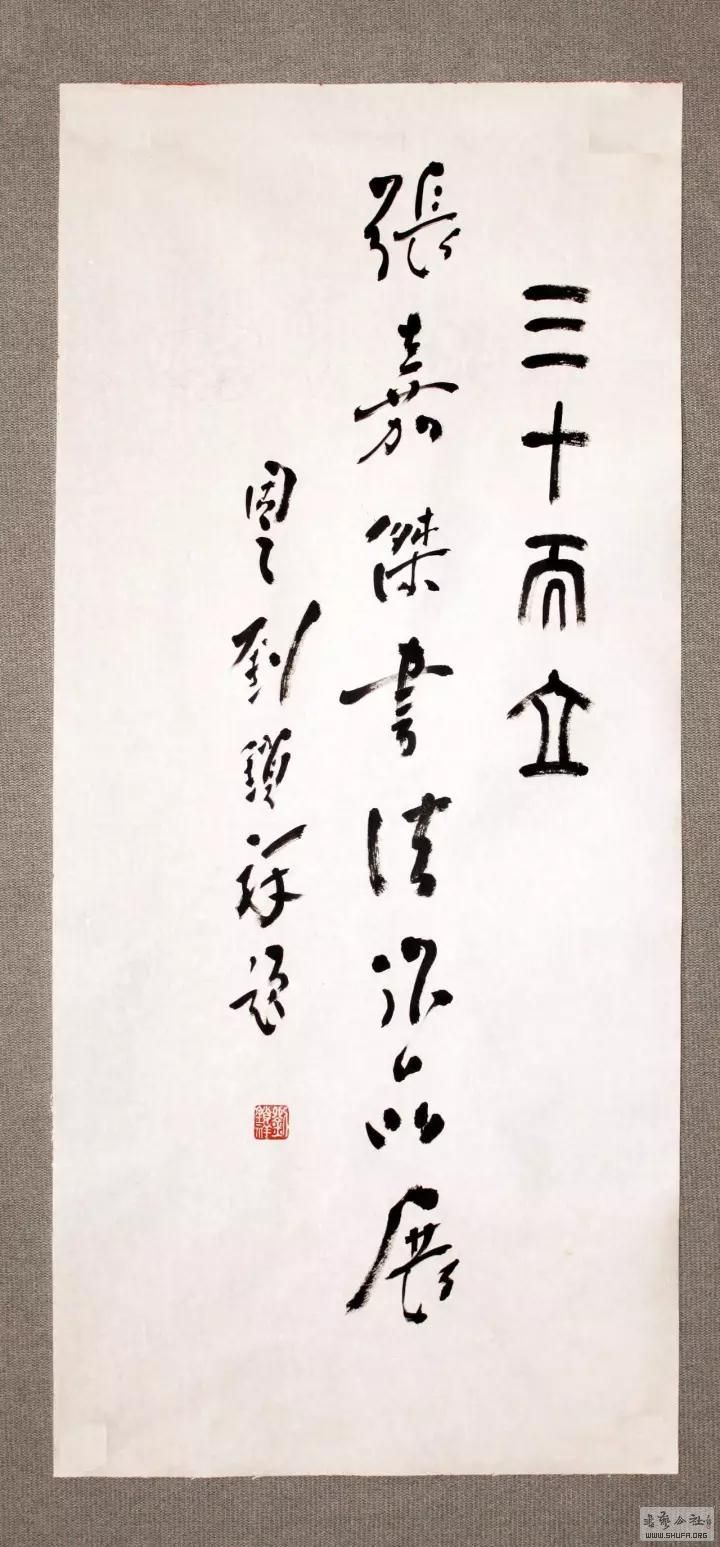 三十而立
張嘉傑書法作品展
劉鎖祥題
劉鎖祥
書藝公社
WWW.SHUFA.ORG